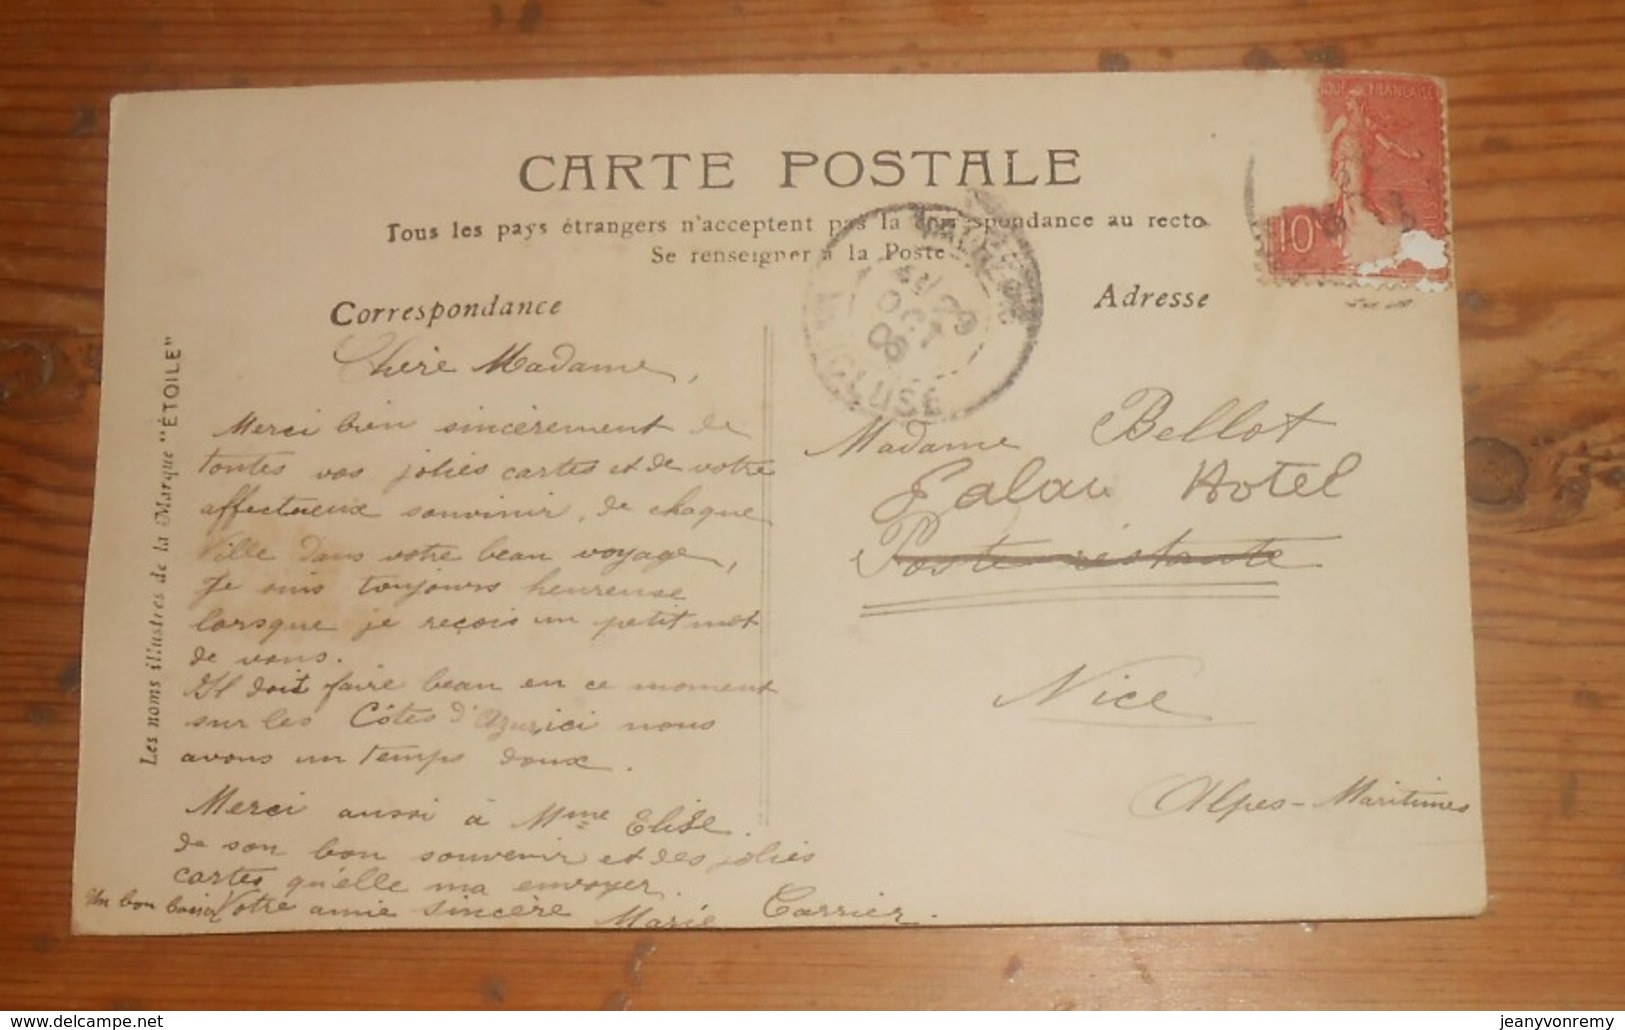 CARTE POSTALE
Tous les pays étrangers n'acceptent pas la correspondance au recto
Se renseigner à la Poste
Correspondance
Adresse
Les noms illustres de la Marque "ÉTOILE"
QUE FRANÇAISE
10
29
OCT
VAUCLUSE
Chère Madame,
Merci bien sincèrement de
toutes vos jolies cartes et de votre
affectueux souvenir, de chaque
Ville dans votre beau voyage,
Je suis toujours heureuse
lorsque je reçois un petit mot
de vous.
Il doit faire beau en ce moment
sur les Côtes d'Azur, ici nous
avons un temps doux.
Merci aussi à Mme Elise.
de son bon souvenir et des jolies
cartes qu'elle ma envoyer.
Un bon baiser Votre amie sincère Marie Carrier.
Madame Bellot
Palau Hotel
Poste restante
Nice
Alpes-Maritimes
delcampe.net
jeanyvonremy